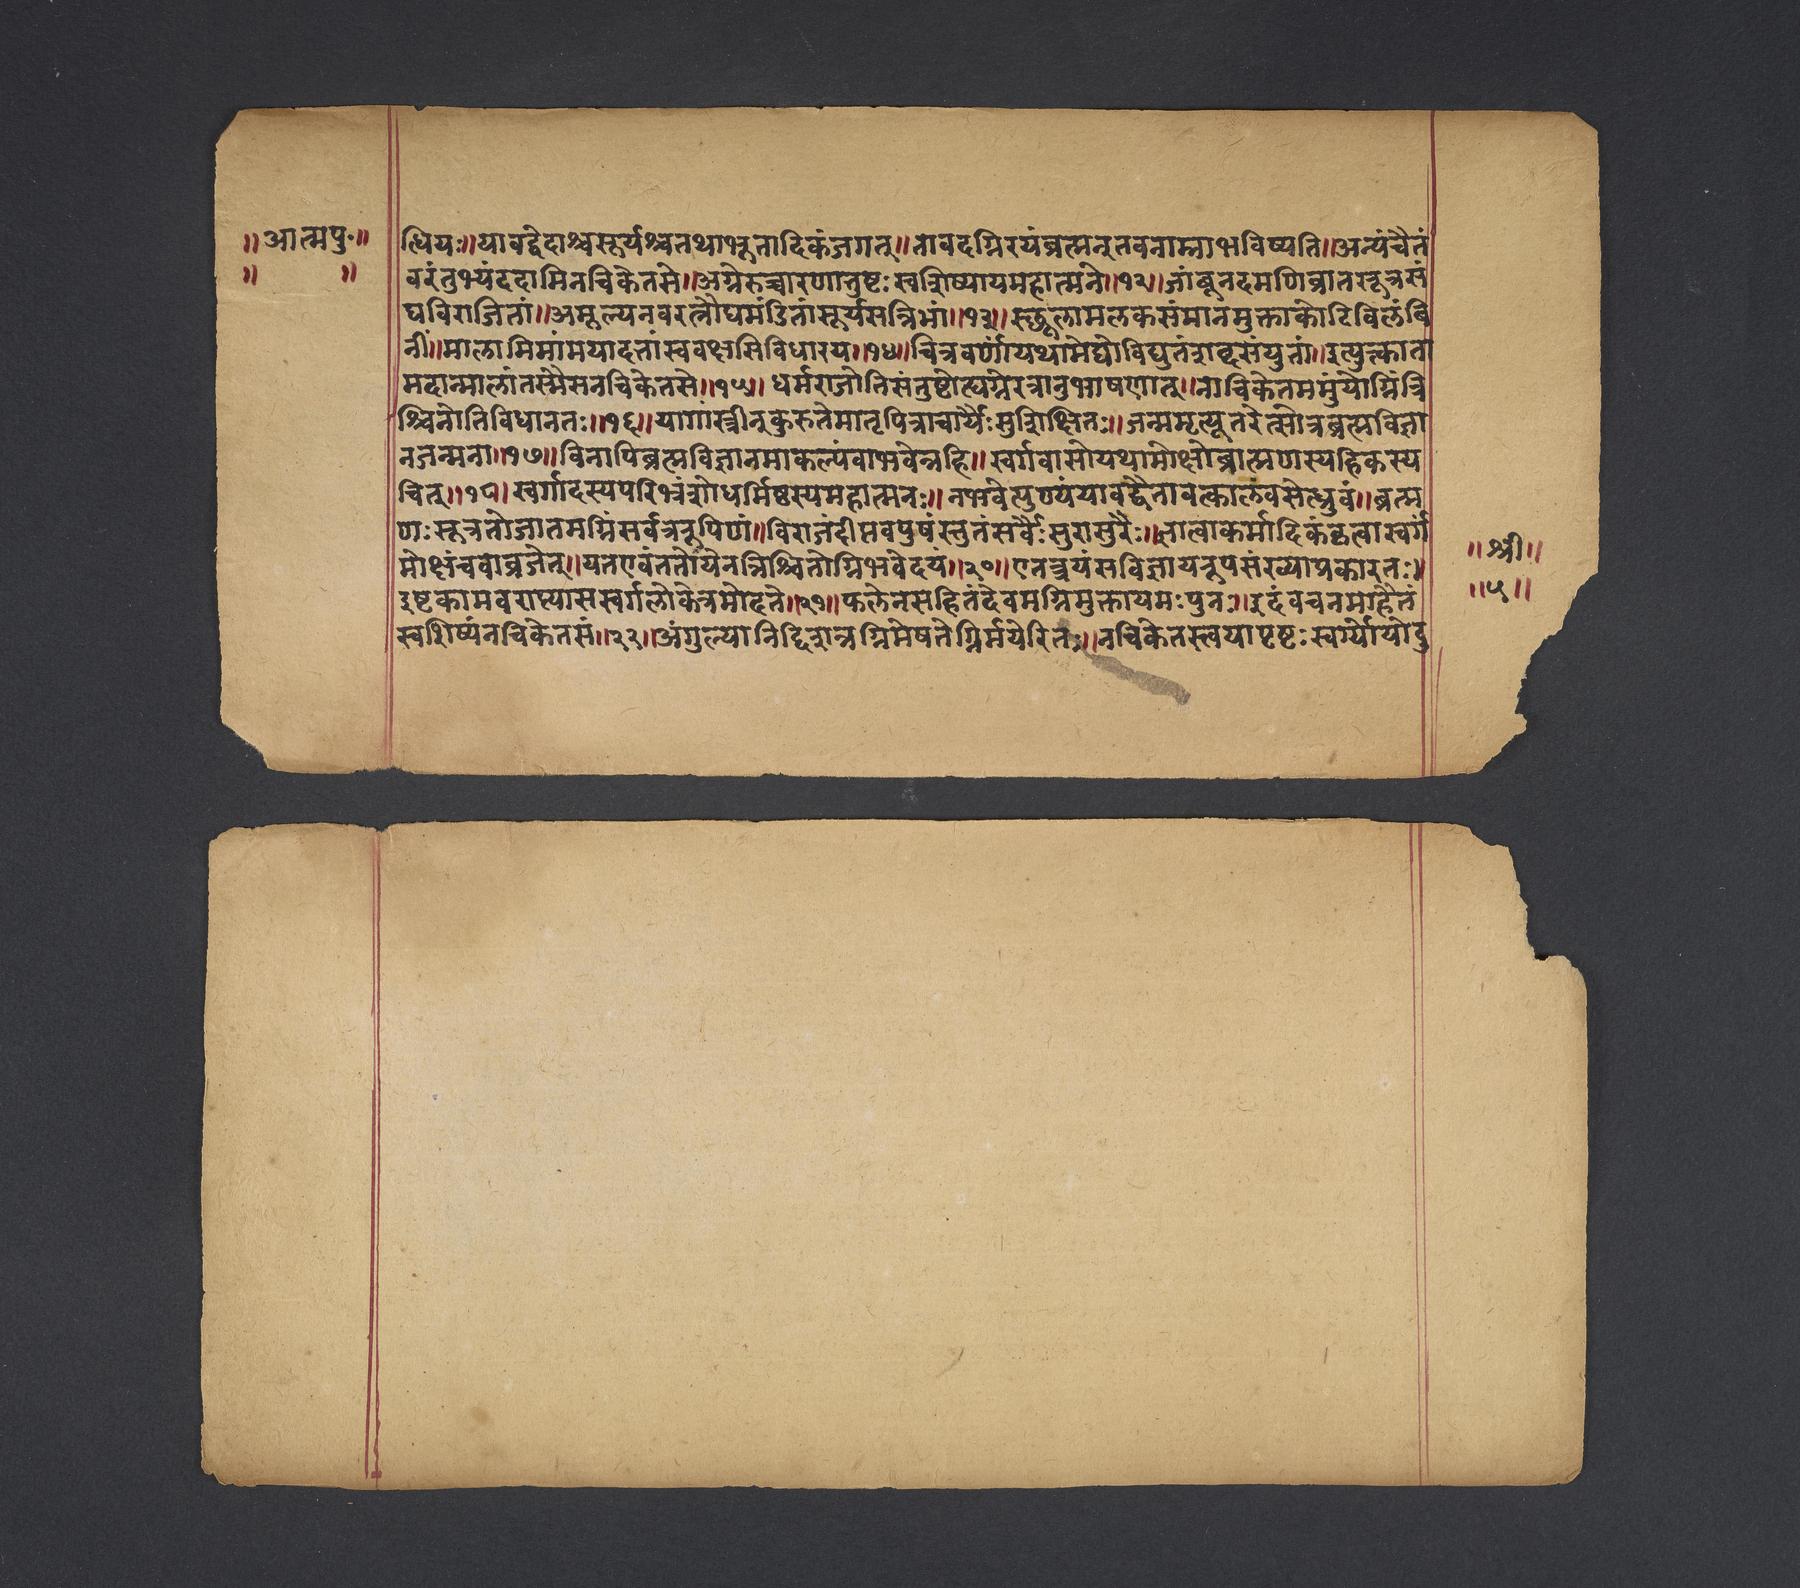 ॥आत्मपु॰॥
॥ ॥
त्धियः॥यावद्वेदाश्चसूर्यश्चतथाभूतादिकंजगत्॥तावदग्निरयंब्रह्मन्तवनाम्नाभविष्यति॥अन्यंचैतं
वरंतुभ्यंददामिनचिकेतसे॥अग्नेरुच्चारणात्तुष्टःस्वशिष्यायमहात्मने॥१२॥जांबूनदमणिव्रातस्वूत्रसं
घविराजितां॥अमूल्यनवरत्नौघमंडितांसूर्यसन्निभां॥१३॥स्छूलामलकसंमानमुक्ताकोटिविलंबि
नीं॥मालामिमांमयादत्तांस्ववक्षसिविधारय॥१४॥चित्रवर्णांयथामेघोविद्युतंशब्दसंयुतां॥इत्युक्त्कातां
महान्मालांतस्मैसनचिकेतसे॥१५॥धर्मराजोतिसंतुष्टोत्द्यग्नेरत्रानुभाषणात्॥नाचिकेतममुंयोग्निंत्रि
श्चिनोतिविधानतः॥१६॥यागांस्त्रीन्कुरुतेमातृपित्राचार्यैःसुशिक्षितः॥जन्ममृत्यूतरेत्सोत्रब्रह्मविज्ञा
नजन्मना॥१७॥विनापिब्रह्मविज्ञानमाकल्पंवाभवेन्नहि॥स्वर्गवासोयथामोक्षोब्राह्मणस्यहिकस्य
चित्॥१८॥स्वर्गादस्यपरिभ्रंशोधर्मिष्टस्यमहात्मनः॥नभवेत्पुण्ययंयावद्द्वैतावत्कालंवसेत्ध्रुवं॥ब्रह्म
णःसूत्रतोजातमग्निंसर्वत्ररूपिणं॥विराजंदीप्तवपुषंस्तुतंसर्वैःसुरासुरैः॥ज्ञात्वाकर्मादिकंकृत्वास्वर्गं
मोक्षंचवाव्रजेत्॥यतएवंततोयेनत्रिश्चितोग्निभवेदयं॥२०॥एतत्त्रयंसविज्ञायरूपसंख्याप्रकारतः॥
इष्टकामवराप्यासस्वर्गलोकेत्रमोदते॥२१॥फलेनसहितंदेवमग्निमुक्तायमःपुनः॥इदंवचनमाहैतं
स्वशिष्यंनचिकेतसं॥२२॥अंगुल्यानिद्दिशन्नग्निमेषतेग्निर्मयेरितः॥नचिकेतस्त्वयापृष्टःस्वर्ग्योयोदु
॥श्री॥
॥५॥